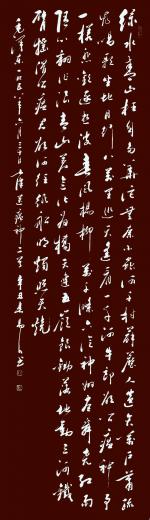 绿水青山枉自多華佗無奈小蟲何千村薜荔人遺矢萬户蕭疏
鬼唱歌坐地日行八萬里巡天遥看一千河牛郎欲问瘟神事
一樣悲歡逐逝波春風楊柳萬千條六億神州盡舜堯紅雨
随心翻作浪青山着意化為橋天連五嶺銀鋤落地動三河鐵
臂摇借问瘟君欲何往纸船明燭照天燒
毛澤東一九五八年六月三十日七律送瘟神二首辛丑